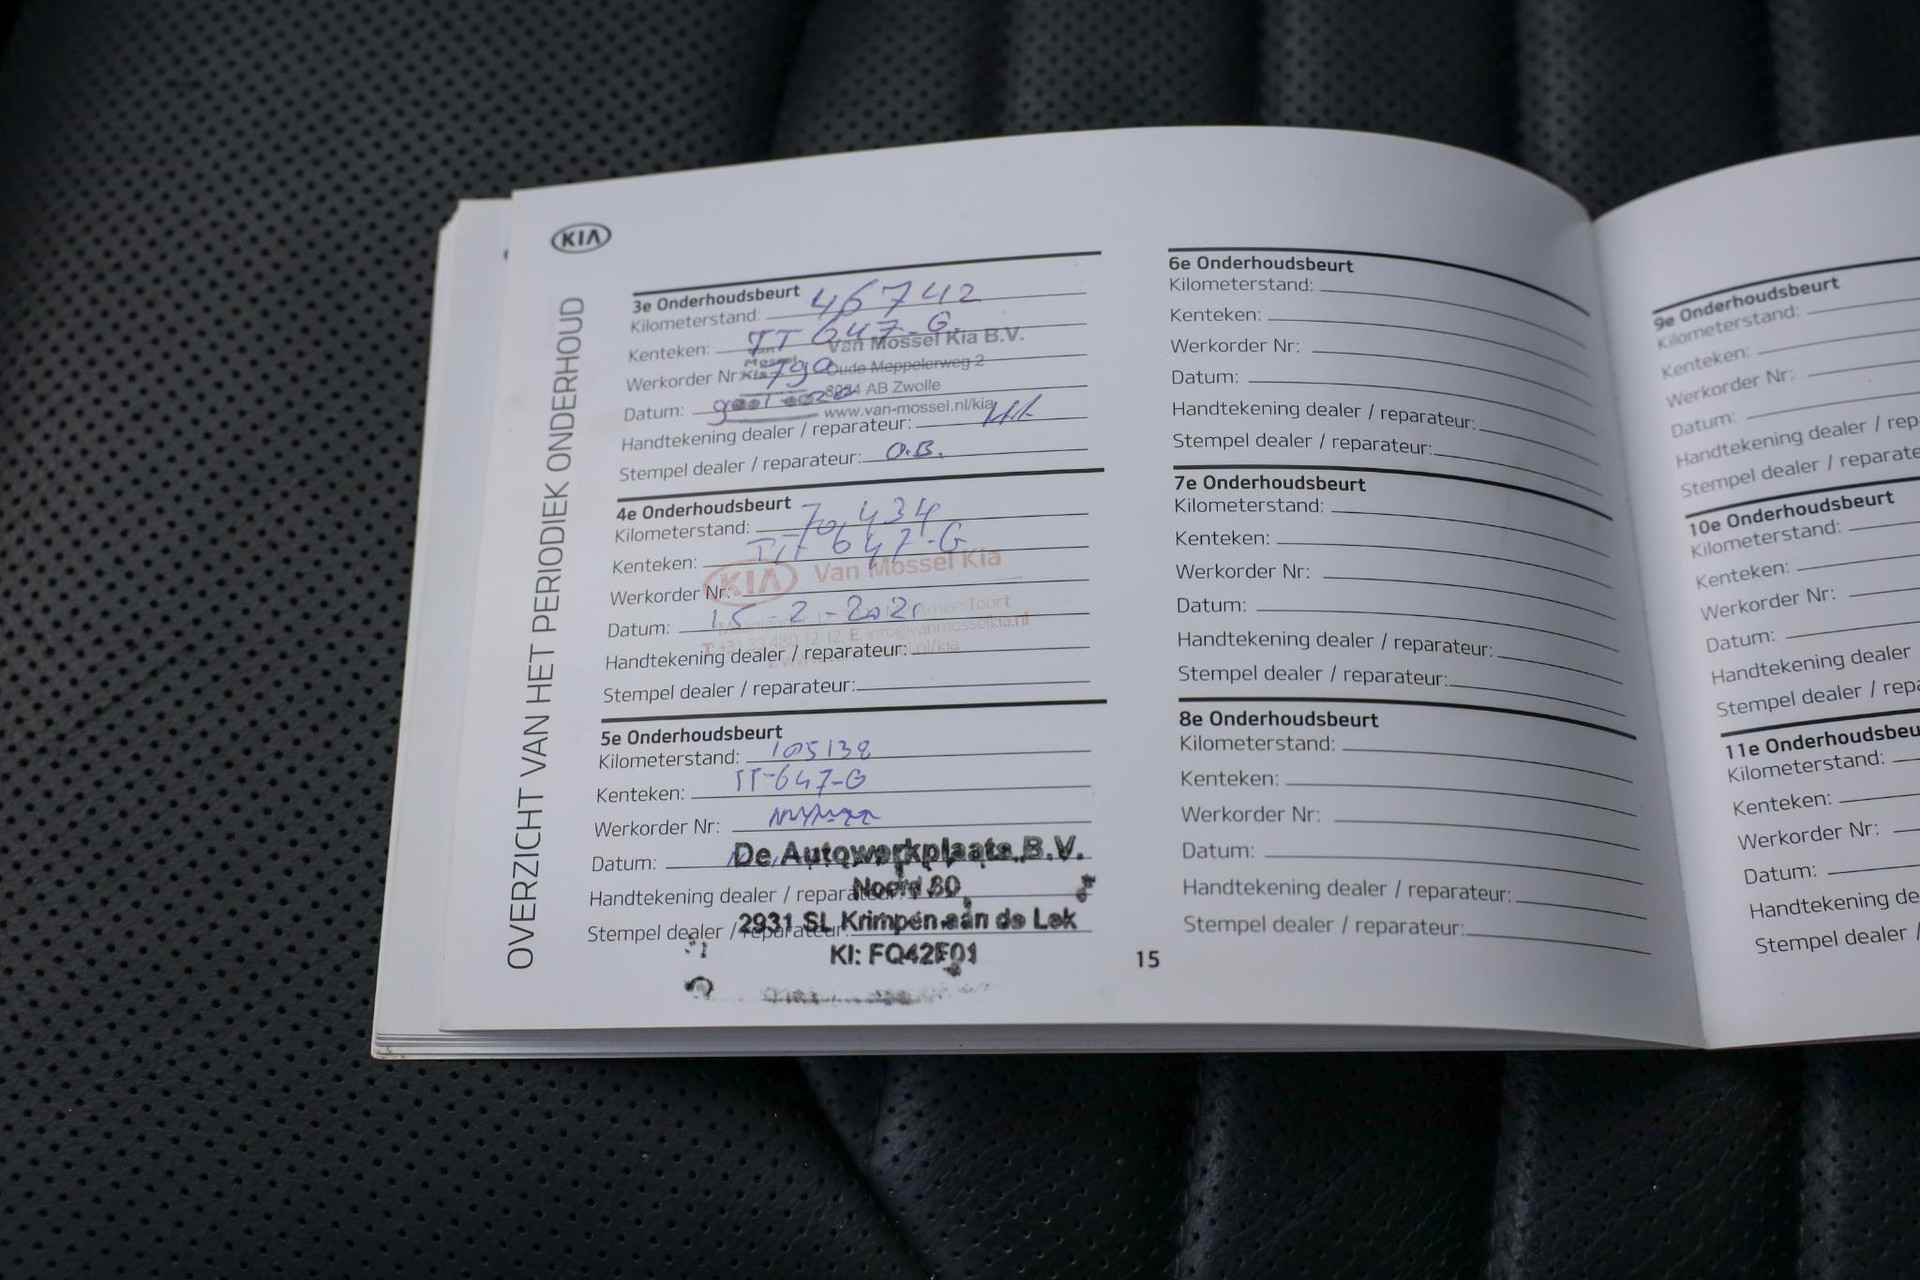 KIA
OVERZICHT VAN HET PERIODIEK ONDERHOUD
3e Onderhoudsbeurt
Kilometerstand: 46742
Kenteken: TT 647-G
Van Mossel Kia B.V.
Werkorder Nr:
Oude Meppelerweg 2
AB Zwolle
Datum:
www.van-mossel.nl/kia
Handtekening dealer / reparateur:
Stempel dealer / reparateur: O.B.
4e Onderhoudsbeurt
Kilometerstand: 70434
Kenteken: TT 647-G
KIA Van Mossel Kia
Werkorder Nr:
Datum: 15-2-2021
Handtekening dealer / reparateur:
Stempel dealer / reparateur:
5e Onderhoudsbeurt
Kilometerstand: 105138
Kenteken: TT-647-G
Werkorder Nr:
Datum:
De Autowerkplaats B.V.
Handtekening dealer / reparateur:
Noord 80
Stempel dealer / reparateur:
2931 SL Krimpen aan de Lek
KI: FQ42F01
15
6e Onderhoudsbeurt
Kilometerstand:
Kenteken:
Werkorder Nr:
Datum:
Handtekening dealer / reparateur:
Stempel dealer / reparateur:
7e Onderhoudsbeurt
Kilometerstand:
Kenteken:
Werkorder Nr:
Datum:
Handtekening dealer / reparateur:
Stempel dealer / reparateur:
8e Onderhoudsbeurt
Kilometerstand:
Kenteken:
Werkorder Nr:
Datum:
Handtekening dealer / reparateur:
Stempel dealer / reparateur:
9e Onderhoudsbeurt
Kilometerstand:
Kenteken:
Werkorder Nr:
Datum:
Handtekening dealer / rep
Stempel dealer / reparate
10e Onderhoudsbeurt
Kilometerstand:
Kenteken:
Werkorder Nr:
Datum:
Handtekening dealer
Stempel dealer / repa
11e Onderhoudsbeu
Kilometerstand:
Kenteken:
Werkorder Nr:
Datum:
Handtekening de
Stempel dealer /